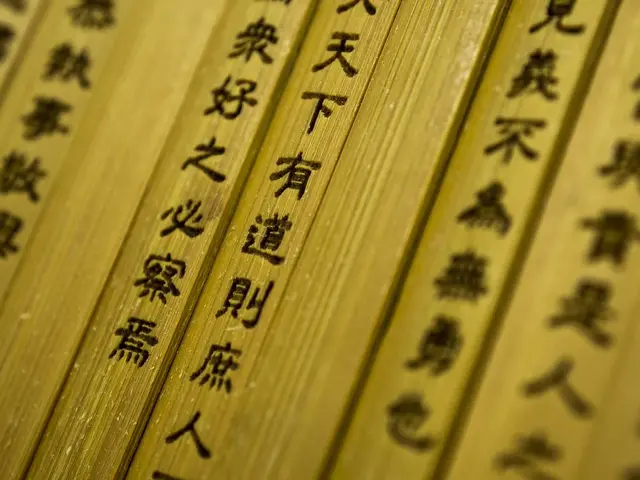 與貴是人之
見義不為無勇也
天下有道則庶人
衆好之必察焉
恭執事敬與